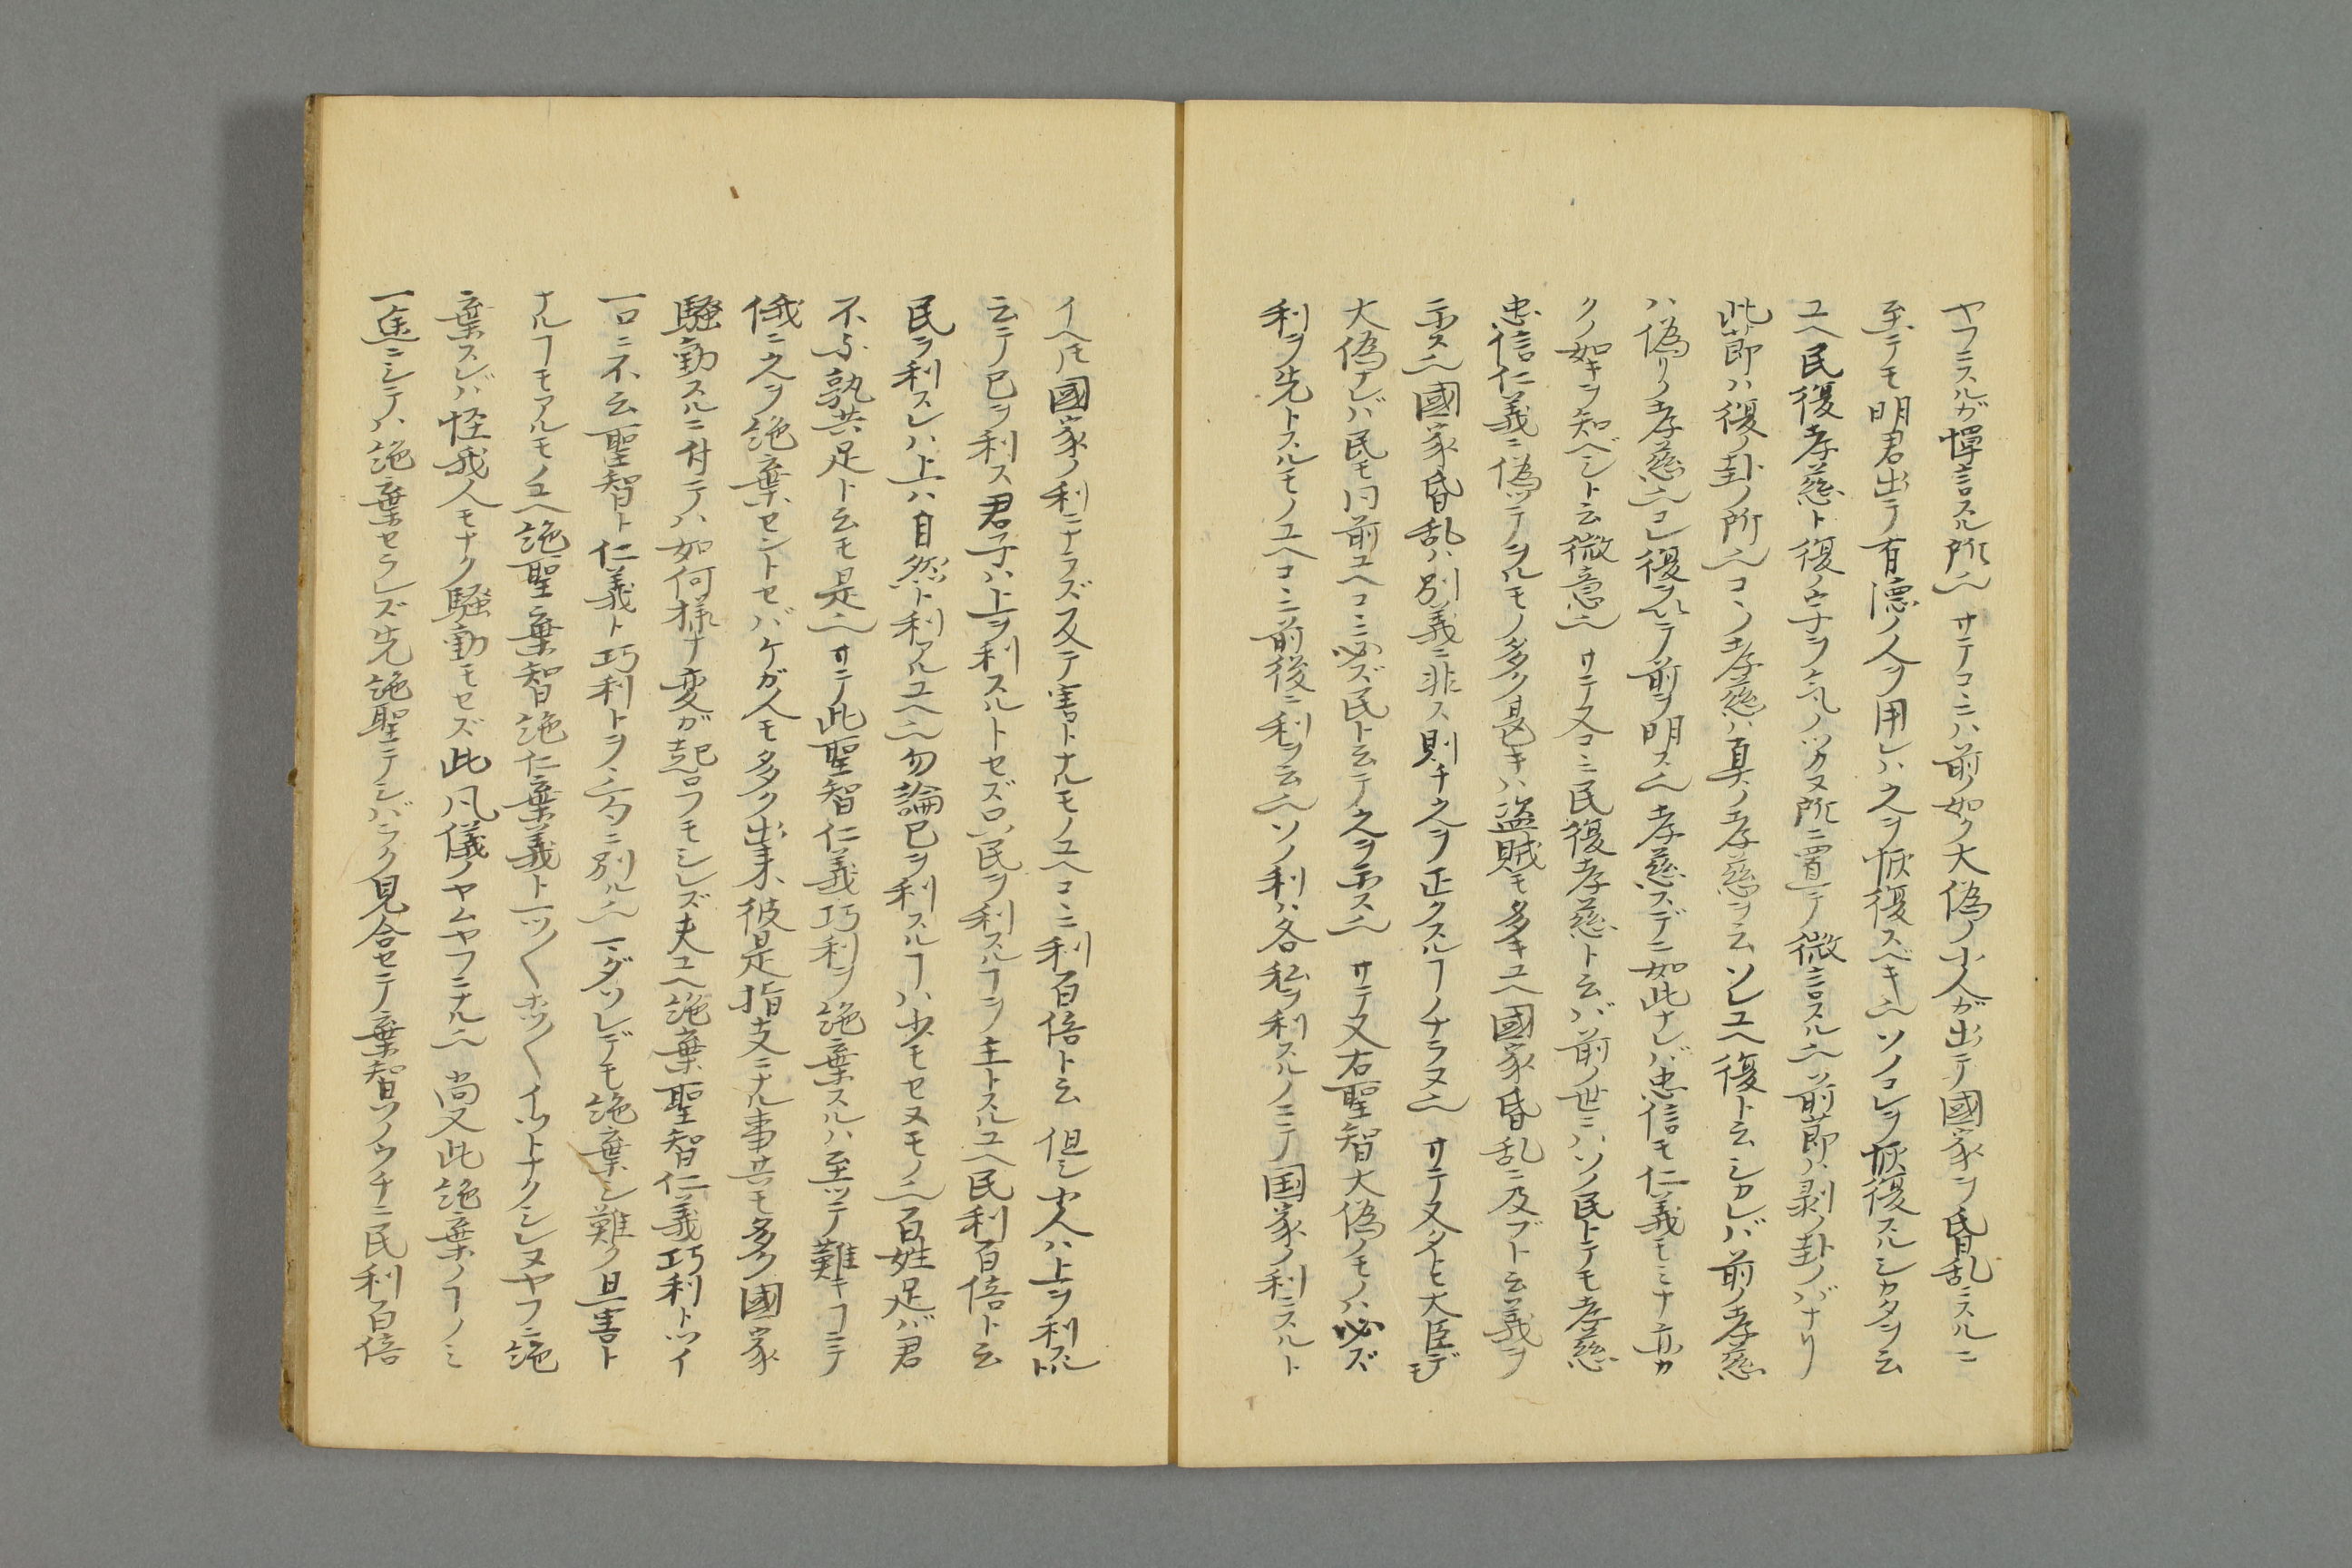 ヤフニスルガ憚言スル所也サテコヽニハ前ノ如ク大偽ノ小人ガ出テ國家ヲ昏乱スルニ
至テモ明君出テ有德ノ人ヲ用レハ之ヲ恢復スベキ也ソノコレヲ恢復スルシカタヲ云
ユヘ民復孝慈ト復ノ字ヲ気ノツカヌ所ニ置テ微言スル也前節ハ剥ノ卦ノバナリ
此節ハ復ノ卦ノ所也コノ孝慈ハ真ノ孝慈ヲ云ソレユヘ復ト云シカレバ前ノ孝慈
ハ偽リノ孝慈也コレ復スルニテ前ヲ明ス也孝慈スデニ如此ナレバ忠信モ仁義モミナ亦カ
クノ如キヲ知ベシト云微意也サテ又コヽニ民復孝慈ト云バ前ノ世ニハソノ民トテモ孝慈
忠信仁義ニ偽ツテヲルモノ多ク是キハ盗賊モ多キユヘ國家昏乱ニ及ブト云義ヲ
示ス也國家昏乱ハ別義ニ非ス則チ之ヲ正クスルヿノナラヌ也サテ又タトヒ大臣デモ
大偽ナレバ民モ同前ユヘコヽニ必ズ民ト云テ之ヲ示ス也サテ又右聖智大偽ノモノハ必ズ
利ヲ先トスルモノユヘコヽニ前後ニ利ヲ云也ソノ利ハ各私ヲ利スルノミニテ国家ノ利ニスルト
イヘ𪜈國家ノ利ニナラズ反テ害トナルモノユヘコヽニ利百倍ト云但シ小人ハ上ヲ利スルト
云テ己ヲ利ス君子ハ上ヲ利スルトセズ只民ヲ利スルヿヲ主トスルユヘ民利百倍ト云
民ヲ利スレハ上ハ自然ト利アルユヘ也勿論己ヲ利スルヿハ少モセヌモノ也百姓足バ君
不ル与孰共足ト云モ是也サテ此聖智仁義巧利ヲ絶棄スルハ至ツテ難キヿニテ
俄ニ之ヲ絶棄セントセバケガ人モ多ク出来彼是指支ニナル事共モ多ク國家
騒動スルニ付テハ如何様ナ変ガ起ロフモシレズ夫ユヘ絶棄聖智仁義巧利トツイ
一口ニ不云聖智ト仁義ト巧利トヲ三句ニ別ル也一ダツレデモ絶棄シ難ク且害ト
ナルヿモアルモノユヘ絶聖棄智絶仁棄義ト一ツ〱ホツ〱イツトナクシレヌヤフニ絶
棄スレバ怪我人モナク騒動モセズ此凡儀ノヤムヤフニナル也尚又此絶棄ノヿノミ
一途ニシテハ絶棄セラレズ先絶聖ニテシバラク見合セテ棄智ソノウチニ民利百倍